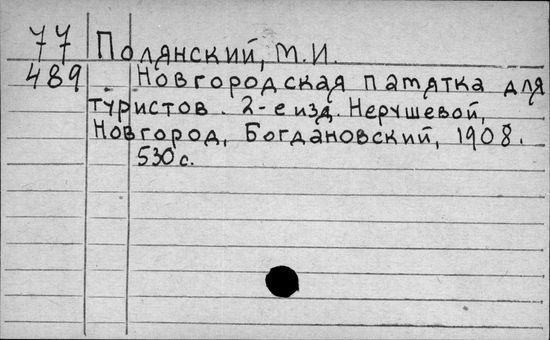 77 Полянский, М.И.
489 Новгородская памятка для
туристов. 2-е изд. Нерушевой,
Новгород, Богдановский, 1908.
530 с.